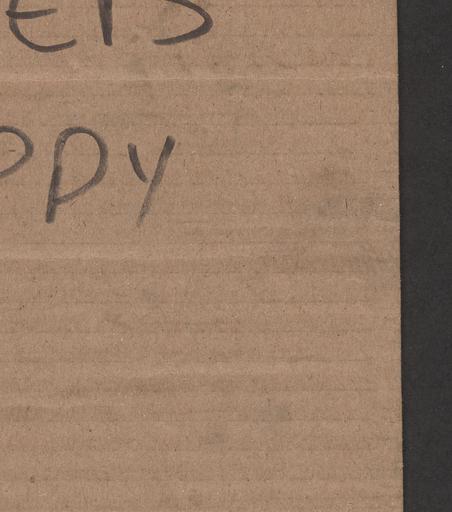 ETS
PPY